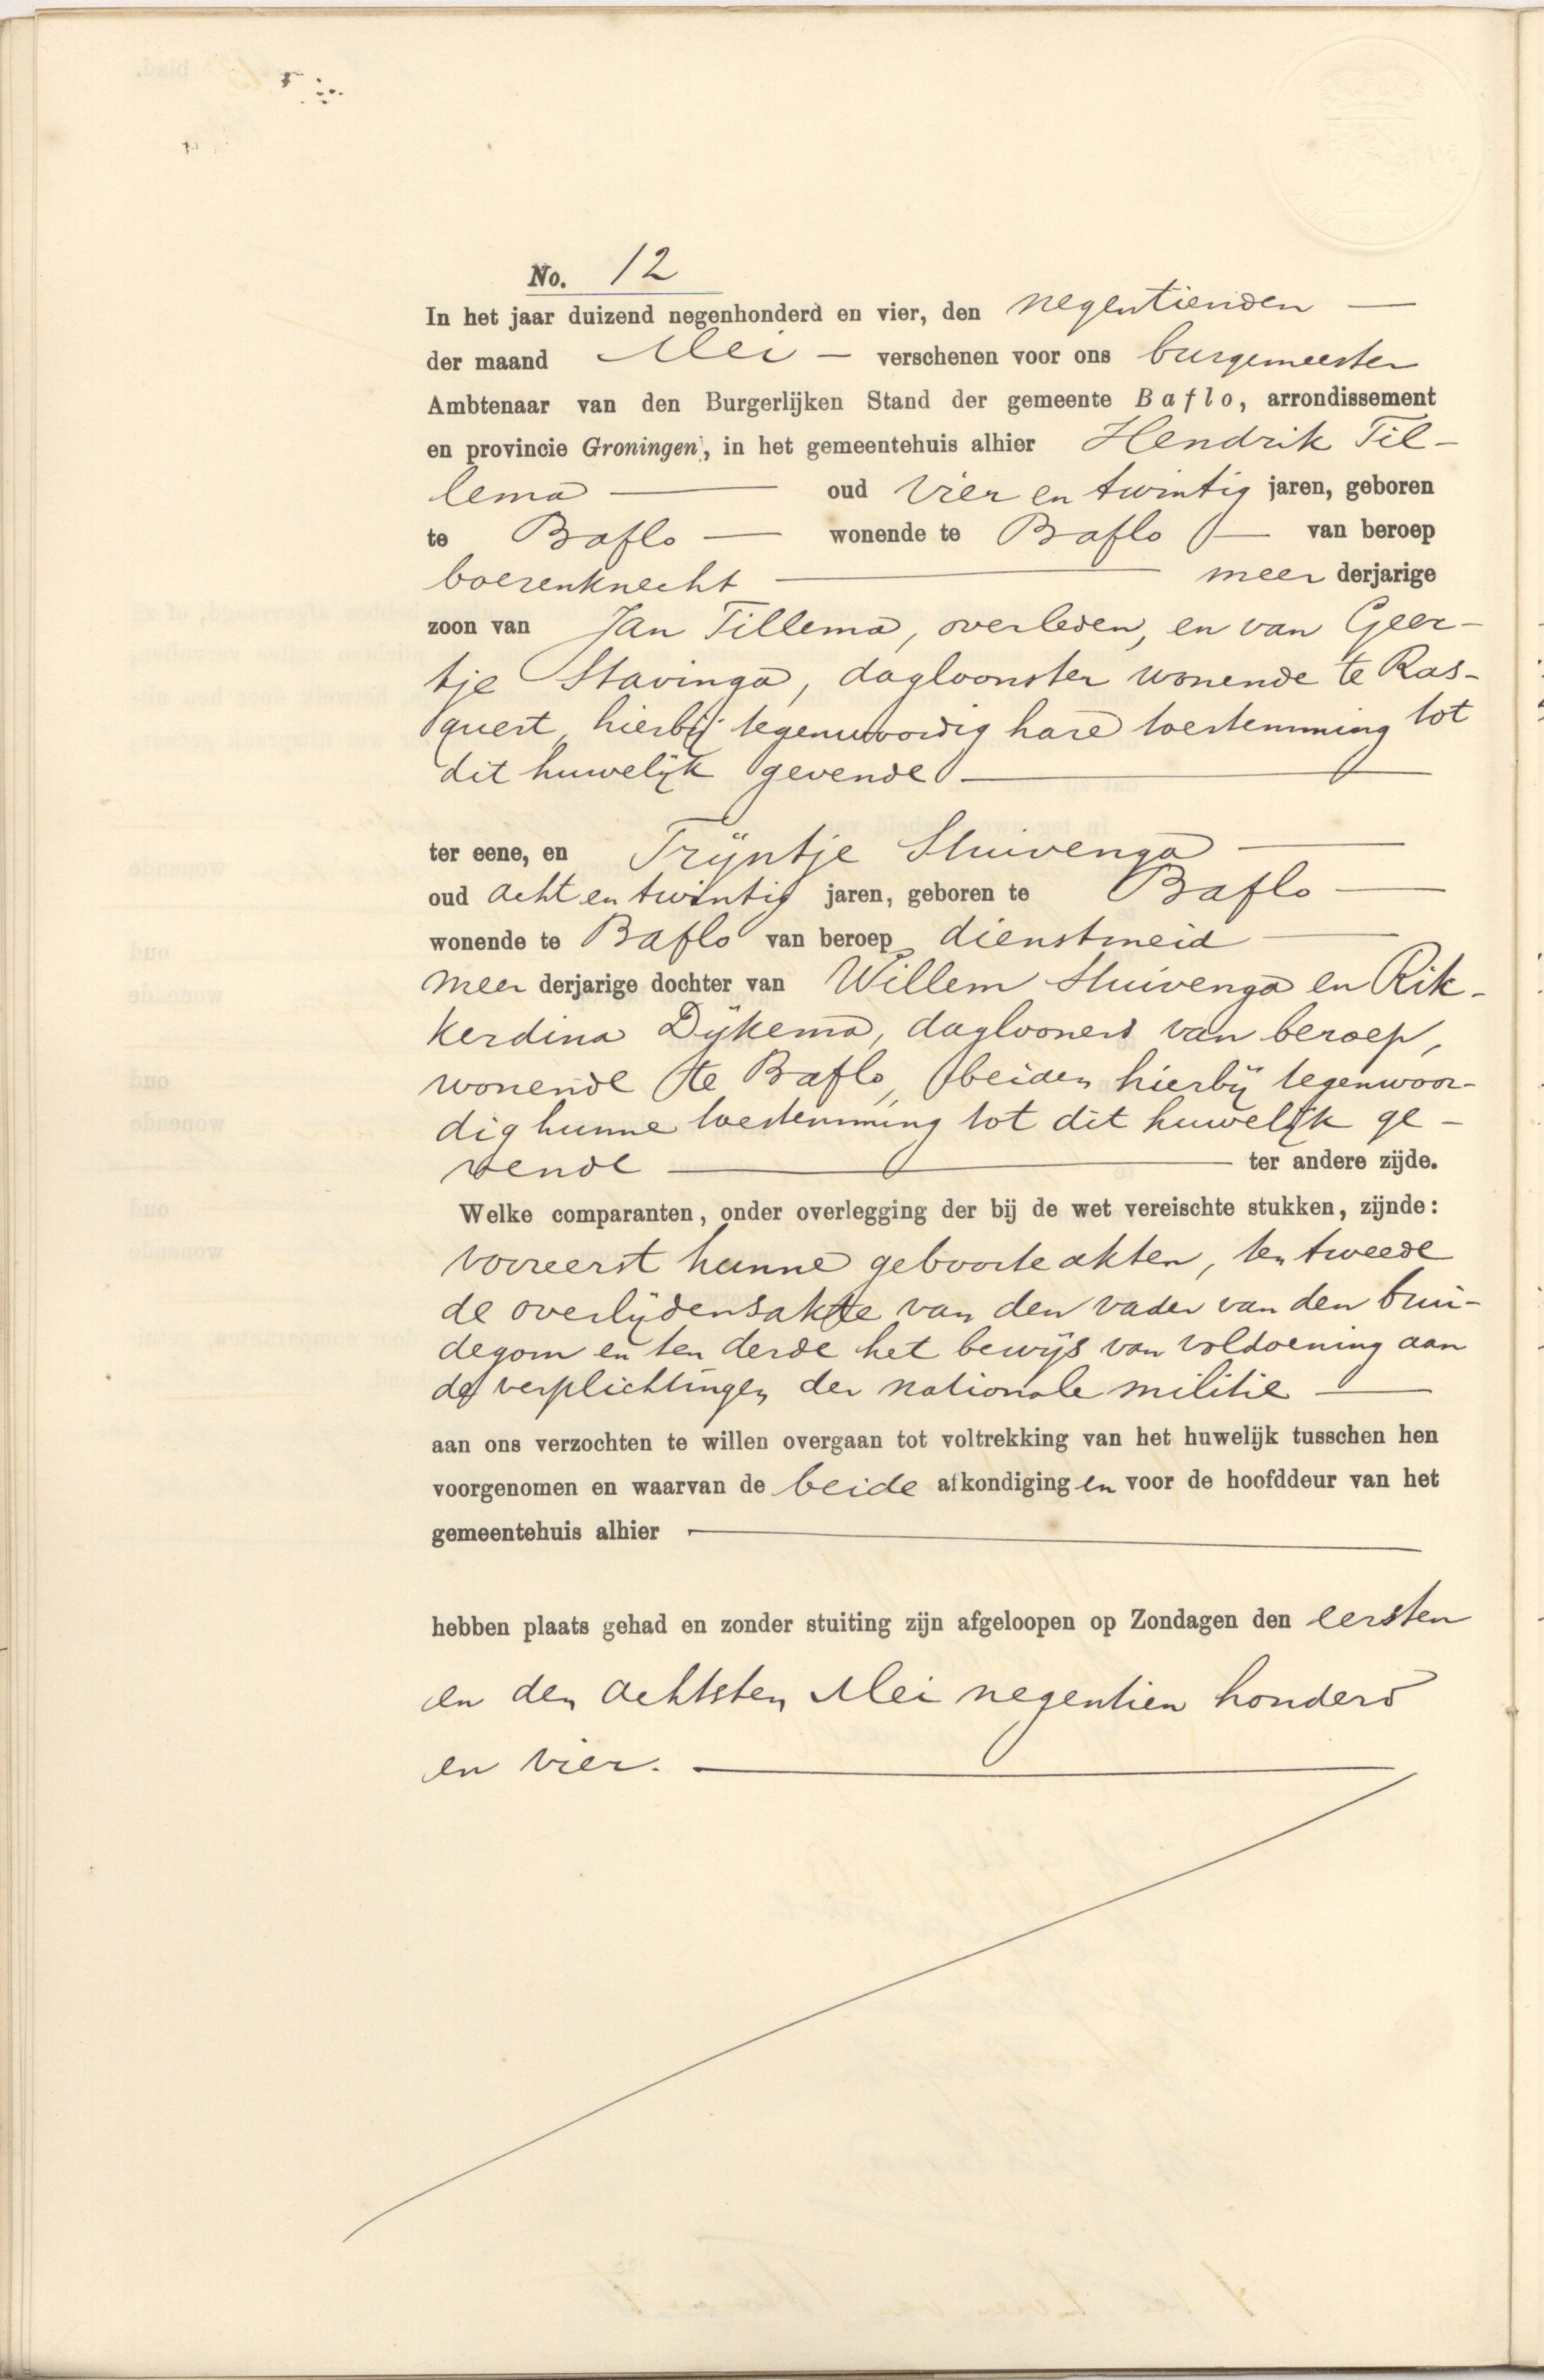 No. 12
In het jaar duizend negenhonderd en vier, den negentienden
der maand Mei verschenen voor ons burgemeester
Ambtenaar van den Burgerlijken Stand der gemeente Baflo, arrondissement
en provincie Groningen, in het gemeentehuis alhier Hendrik Til-
lema oud vier en twintig jaren, geboren
te Baflo wonende te Baflo van beroep
boerenknecht meer derjarige
zoon van Jan Tillema, overleden, en van Geer-
tje Stavinga, dagloonster wonende te Ras-
quert, hierbij tegenwoordig hare toestemming tot
dit huwelijk gevende
ter eene, en Trijntje Stuivenga
oud acht en twintig jaren, geboren te Baflo
wonende te Baflo van beroep dienstmeid
meer derjarige dochter van Willem Stuivenga en Rik-
kerdina Dijkema, daglooners van beroep,
wonende te Baflo, beiden hierbij tegenwoor-
dig hunne toestemming tot dit huwelijk ge-
vende ter andere zijde.
Welke comparanten, onder overlegging der bij de wet vereischte stukken, zijnde:
vooreerst hunne geboorteakten, ten tweede
de overlijdensakte van den vader van den brui-
degom en ten derde het bewijs van voldoening aan
de verplichtingen der nationale militie
aan ons verzochten te willen overgaan tot voltrekking van het huwelijk tusschen hen
voorgenomen en waarvan de beide afkondigingen voor de hoofddeur van het
gemeentehuis alhier
hebben plaats gehad en zonder stuiting zijn afgeloopen op Zondagen den eersten
en den achtsten Mei negentien honderd
en vier.